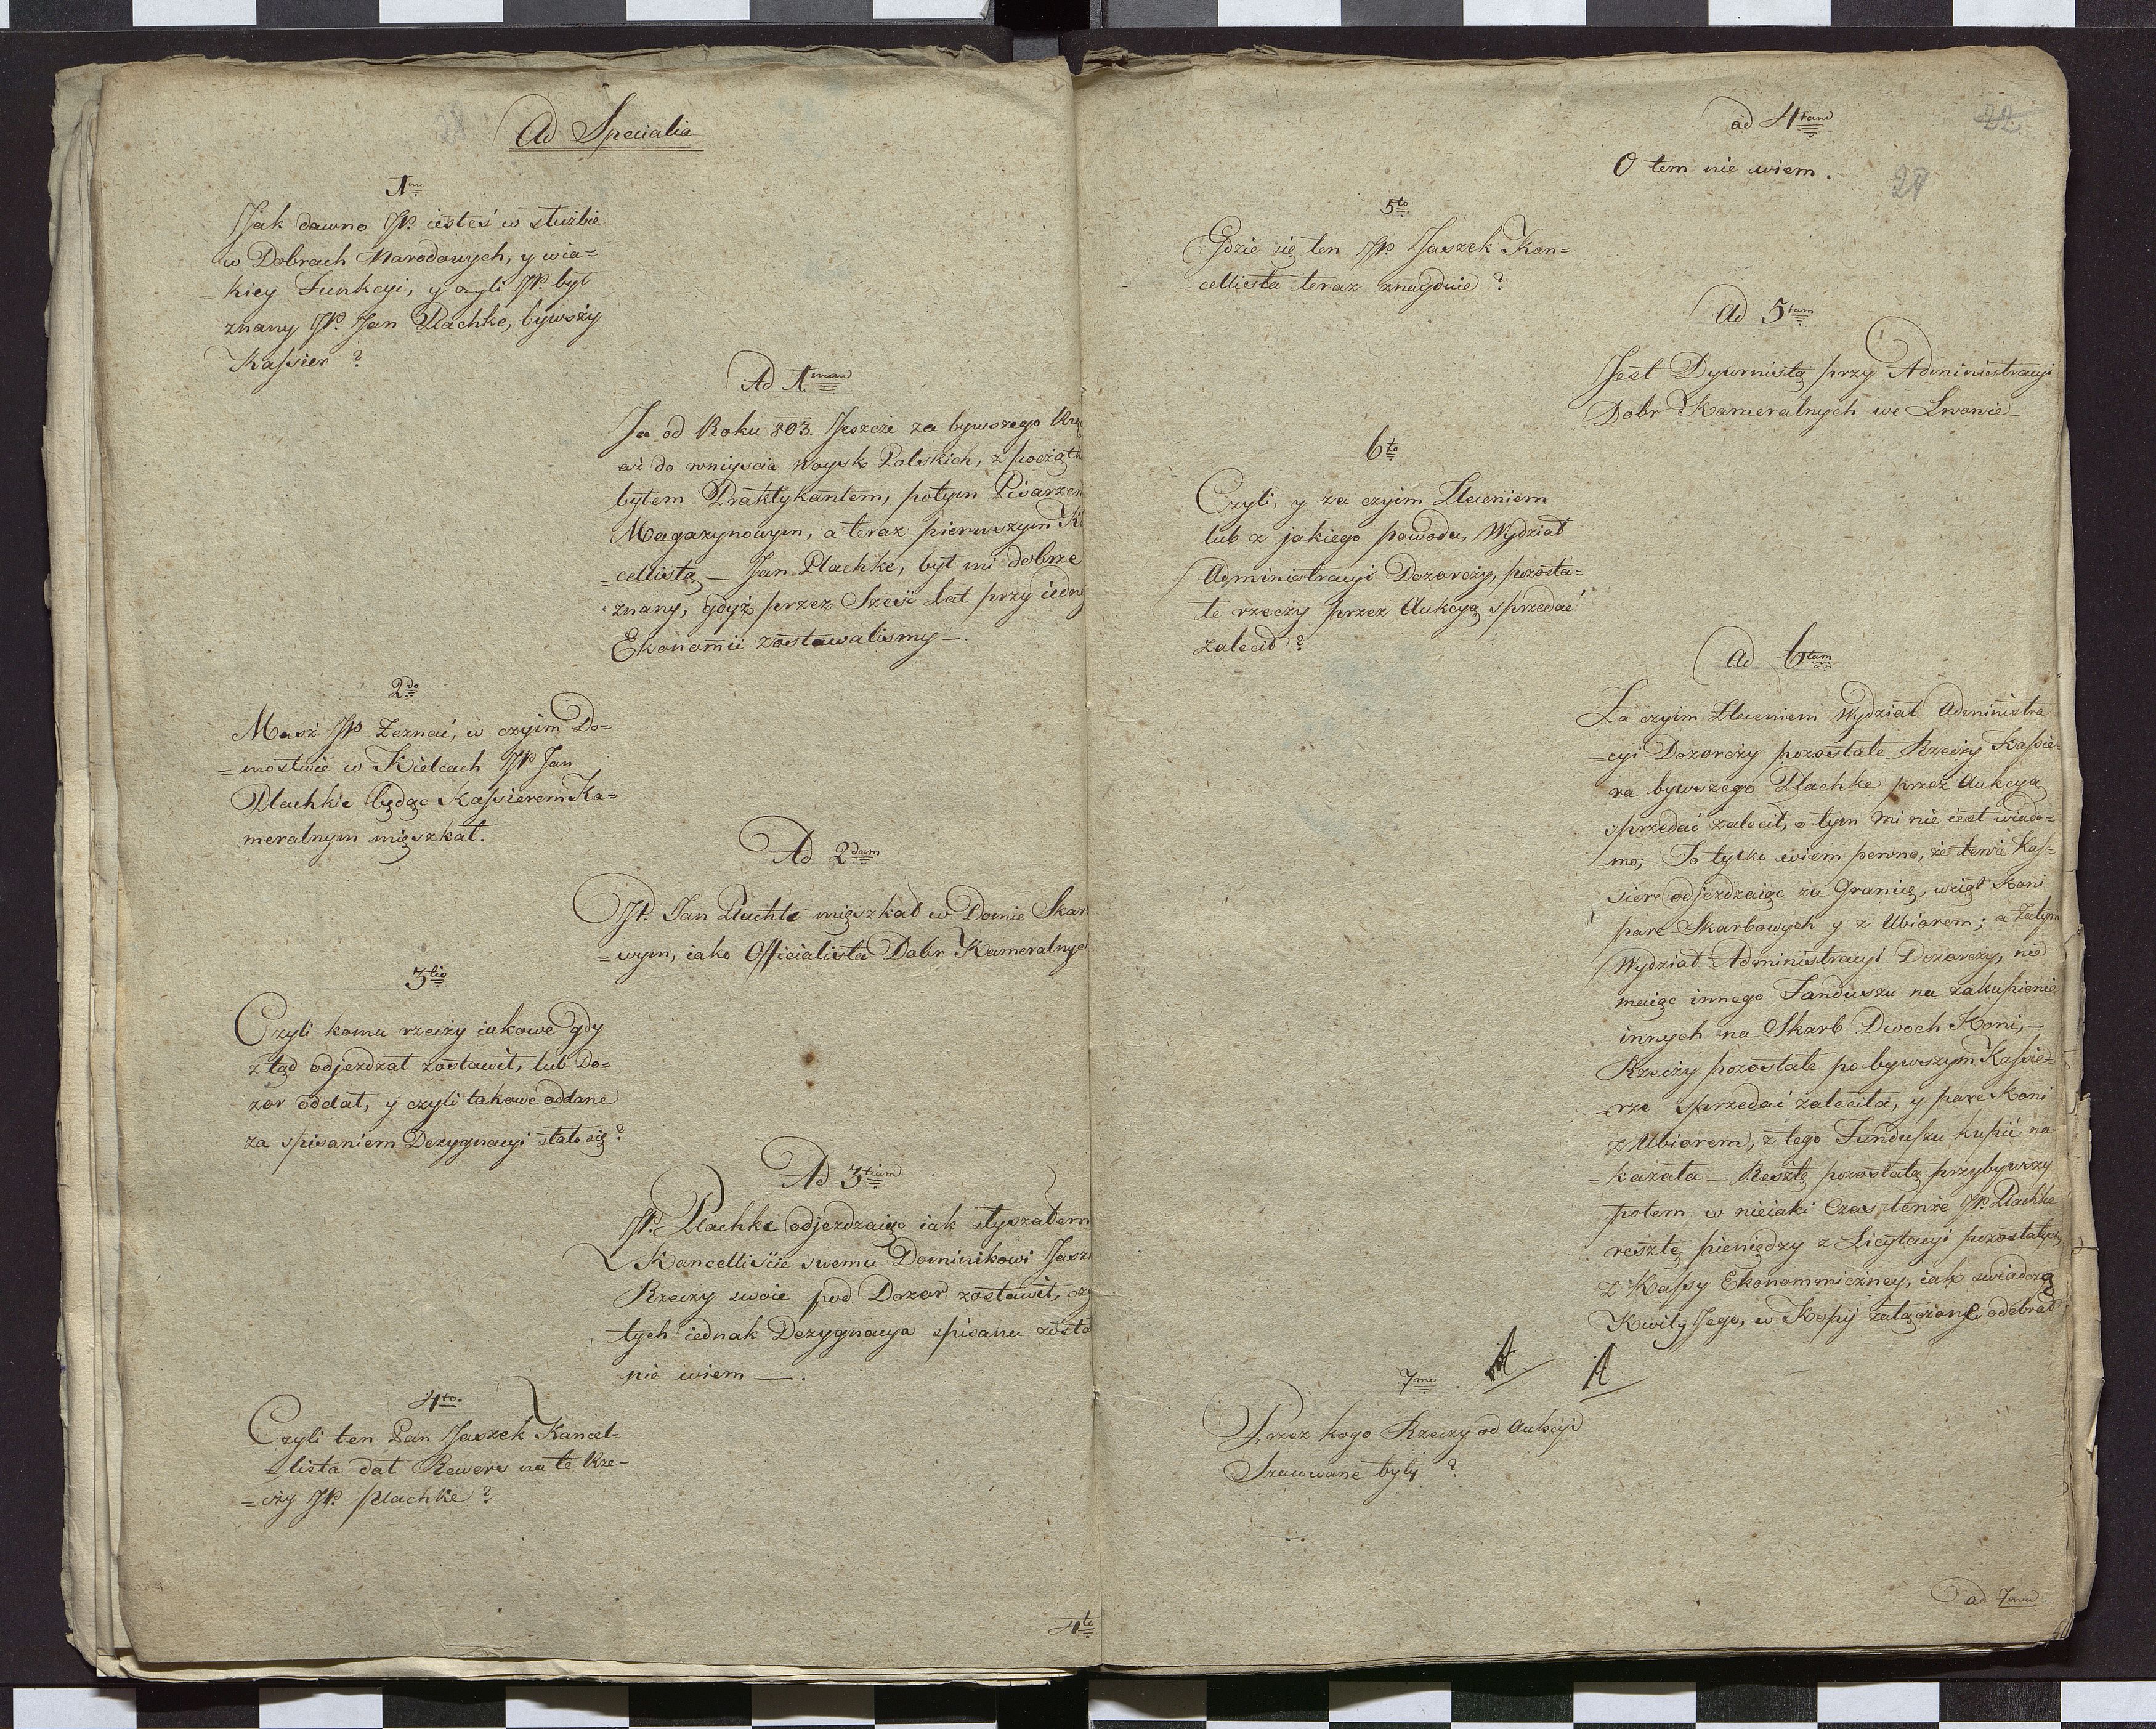 Ad Specialia
1mo
Jak dawno JP. iesteś w służbie
w Dobrach Narodowych, y wia=
=kiey Funkcyi, y czyli JP. był
znany JP. Jan Plachke, bywszy
Kassier ?
Ad 1mum
Ja od Roku 803. Jeszcze za bywszego
aż do wniyscia Woysk Polskich, z począt
byłem Praktykantem, potym Pisarzem
Magazynowym, a teraz pierwszym K
=cellistą — Jan Plachke, był mi dobrze
znany, gdyż przez Sześć Lat przy iedn
Ekonomii zostawalismy —.
2do
Masz JP. Zeznać, w czyim Do=
=mostwie w Kielcach JP. Jan
Plachke będąc Kassierem Ka=
meralnym mięszkał.
Ad 2dum
JP. Jan Plachke mięszkał w Domie Skar
=wym, iako Officialista Dobr Kameralnych
3tio
Czyli komu rzeczy iakowe gdy
ztąd odjezdzał zostawił, lub Do=
zor oddał, y czyli takowe oddane
za spisaniem Dezygnacyi stało się ?
Ad 3tium
JP. Plachke odjezdzaiąc iak słyszałem
Kancelliście swemu Dominikowi Jasz
Rzeczy swoie pod Dozor zostawił, czy
tych iednak Dezygnacya spisana zosta
nie wiem —.
4to.
Czyli ten Pan Jaszek Kancel=
=lista dał Rewers na te Rze-
=czy JP. Plachke ?
4to
22.
ad 4tum
O tem nie wiem.
5to
Gdzie się ten JP. Jaszek Kan=
=cellista teraz znayduie ?
Ad 5tum
Jest Dyurnistą przy Administracyi
Dobr Kameralnych we Lwowie —
6to
Czyli, y za czyim Zleceniem
lub z jakiego powodu, Wydział
Administracyi Dozorczy, pozosta=
łe rzeczy przez Aukcyą sprzedać
zalecił ?
Ad 6tum
Za czyim Zleceniem Wydział Administra
=cyi Dozorczy pozostałe Rzeczy Kassie=
ra bywszego Plachke przez Aukcyą
sprzedać zalecił, o tym mi nie iest wiado=
mo; To tylko wiem pewno, że tenże Kas=
sier odjezdzaiąc za Granicę, wziął Koni
parę Skarbowych y z Ubiorem; a Zatym
Wydział Administracyi Dozorczy, nie
maiąc innego Funduszu na zakupienie
innych na Skarb Dwoch Koni, —
Rzeczy pozostałe po bywszym Kassie=
=rze sprzedać zaleciła, y parę Koni
z Ubiorem, z tego Funduszu kupić na
=kazała — Resztę pozostałą przybywszy
potem w nieiaki Czas, tenże JP. Plachke
resztę pieniędzy z Licytacyi pozostałych
z Kassy Ekonommiczney, iak swiadczą
Kwity Jego, w Kopij załączone odebrał
7mo
Przez kogo Rzeczy od Aukcyi
Szacowane były ?
ad 7mum